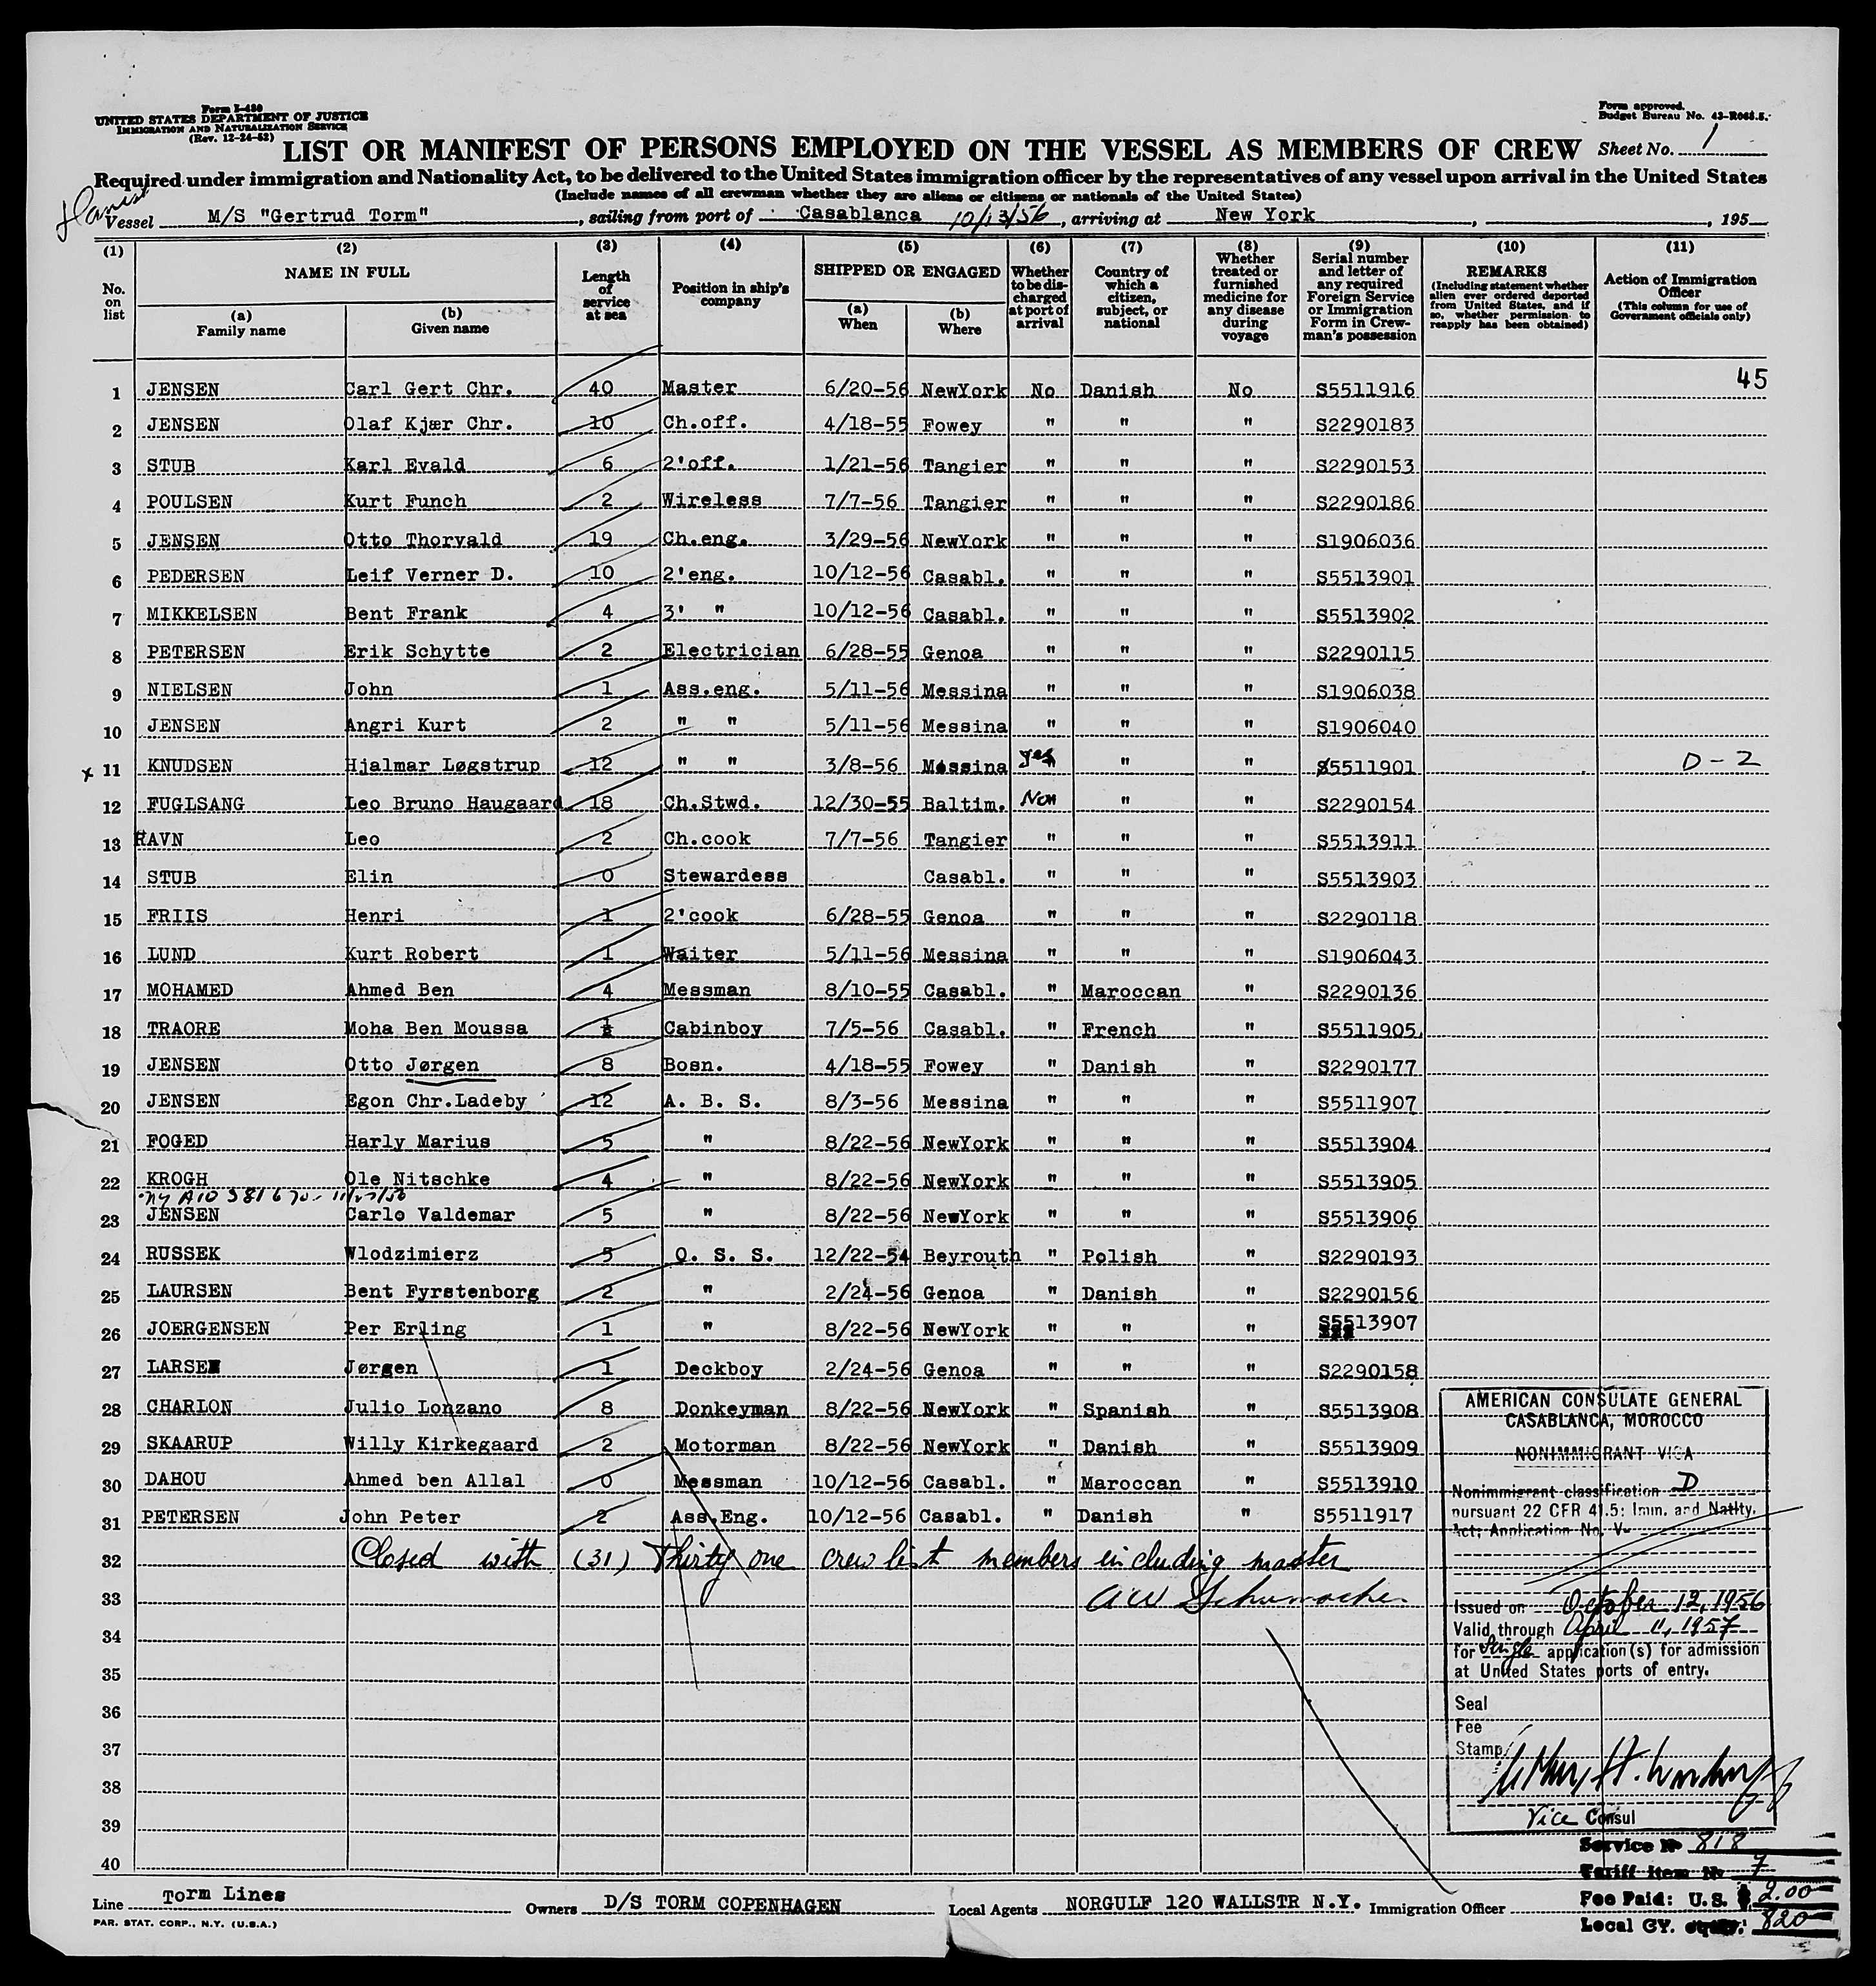 Form I-480
UNITED STATES DEPARTMENT OF JUSTICE
IMMIGRATION AND NATURALIZATION SERVICE
(Rev. 12-24-52)
Form approved.
Budget Bureau No. 43-R065.5.
LIST OR MANIFEST OF PERSONS EMPLOYED ON THE VESSEL AS MEMBERS OF CREW
Sheet No. 1
Required under immigration and Nationality Act, to be delivered to the United States immigration officer by the representatives of any vessel upon arrival in the United States
(Include names of all crewman whether they are aliens or citizens or nationals of the United States)
Danish
Vessel M/S "Gertrud Torm", sailing from port of Casablanca 10/13/56, arriving at New York, , 195
(1) (2) (3) (4) (5) (6) (7) (8) (9) (10) (11)
No. on list
NAME IN FULL
(a) Family name
(b) Given name
Length of service at sea
Position in ship's company
SHIPPED OR ENGAGED
(a) When
(b) Where
Whether to be discharged at port of arrival
Country of which a citizen, subject, or national
Whether treated or furnished medicine for any disease during voyage
Serial number and letter of any required Foreign Service or Immigration Form in Crewman's possession
REMARKS
(Including statement whether alien ever ordered deported from United States, and if so, whether permission to reapply has been obtained)
Action of Immigration Officer
(This column for use of Government officials only)
1 JENSEN Carl Gert Chr. 40 Master 6/20-56 NewYork No Danish No S5511916 45
2 JENSEN Olaf Kjær Chr. 10 Ch.off. 4/18-55 Fowey " " " S2290183
3 STUB Karl Evald 6 2'off. 1/21-56 Tangier " " " S2290153
4 POULSEN Kurt Funch 2 Wireless 7/7-56 Tangier " " " S2290186
5 JENSEN Otto Thorvald 19 Ch.eng. 3/29-56 NewYork " " " S1906036
6 PEDERSEN Leif Verner D. 10 2'eng. 10/12-56 Casabl. " " " S5513901
7 MIKKELSEN Bent Frank 4 3' " 10/12-56 Casabl. " " " S5513902
8 PETERSEN Erik Schytte 2 Electrician 6/28-55 Genoa " " " S2290115
9 NIELSEN John 1 Ass.eng. 5/11-56 Messina " " " S1906038
10 JENSEN Angri Kurt 2 " " 5/11-56 Messina " " " S1906040
x 11 KNUDSEN Hjalmar Løgstrup 12 " " 3/8-56 Messina yes " " S5511901 D-2
12 FUGLSANG Leo Bruno Haugaard 18 Ch.Stwd. 12/30-55 Baltim. No " " " S2290154
13 RAVN Leo 2 Ch.cook 7/7-56 Tangier " " " S5513911
14 STUB Elin 0 Stewardess Casabl. " " " S5513903
15 FRIIS Henri 1 2'cook 6/28-55 Genoa " " " S2290118
16 LUND Kurt Robert 1 Waiter 5/11-56 Messina " " " S1906043
17 MOHAMED Ahmed Ben 4 Messman 8/10-55 Casabl. " Maroccan " S2290136
18 TRAORE Moha Ben Moussa Cabinboy 7/5-56 Casabl. " French " S5511905
19 JENSEN Otto Jørgen 8 Bosn. 4/18-55 Fowey " Danish " S2290177
20 JENSEN Egon Chr.Ladeby 12 A. B. S. 8/3-56 Messina " " " S5511907
21 FOGED Harly Marius 5 " 8/22-56 NewYork " " " S5513904
22 KROGH Ole Nitschke 4 " 8/22-56 NewYork " " " S5513905
NY A10 381 670
23 JENSEN Carlo Valdemar 5 " 8/22-56 NewYork " " " S5513906
24 RUSSEK Wlodzimierz 5 O. S. S. 12/22-54 Beyrouth " Polish " S2290193
25 LAURSEN Bent Fyrstenborg 2 " 2/24-56 Genoa " Danish " S2290156
26 JOERGENSEN Per Erling 1 " 8/22-56 NewYork " " " S5513907
27 LARSEN Jørgen 1 Deckboy 2/24-56 Genoa " " " S2290158
28 CHARLON Julio Lonzano 8 Donkeyman 8/22-56 NewYork " Spanish " S5513908
29 SKAARUP Willy Kirkegaard 2 Motorman 8/22-56 NewYork " Danish " S5513909
30 DAHOU Ahmed ben Allal 0 Messman 10/12-56 Casabl. " Maroccan " S5513910
31 PETERSEN John Peter 2 Ass.Eng. 10/12-56 Casabl. " Danish " S5511917
32 Closed with (31) Thirty one crew list members including master
33 AW Schumacher
34
35
36
37
38
39
40
AMERICAN CONSULATE GENERAL
CASABLANCA, MOROCCO
NONIMMIGRANT VISA
Nonimmigrant classification D
pursuant 22 CFR 41.5; Imm. and Natlty.
Act; Application No. V-
Issued on October 12, 1956
Valid through April 11, 1957
for Single application(s) for admission
at United States ports of entry.
Seal
Fee
Stamp
Vice Consul
Service № 818
Tariff Item № 7
Fee Paid: U.S. $ 2.00
Local CY. equiv. 820
Line Torm Lines Owners D/S TORM COPENHAGEN Local Agents NORGULF 120 WALLSTR N.Y. Immigration Officer
PAR. STAT. CORP., N.Y. (U.S.A.)